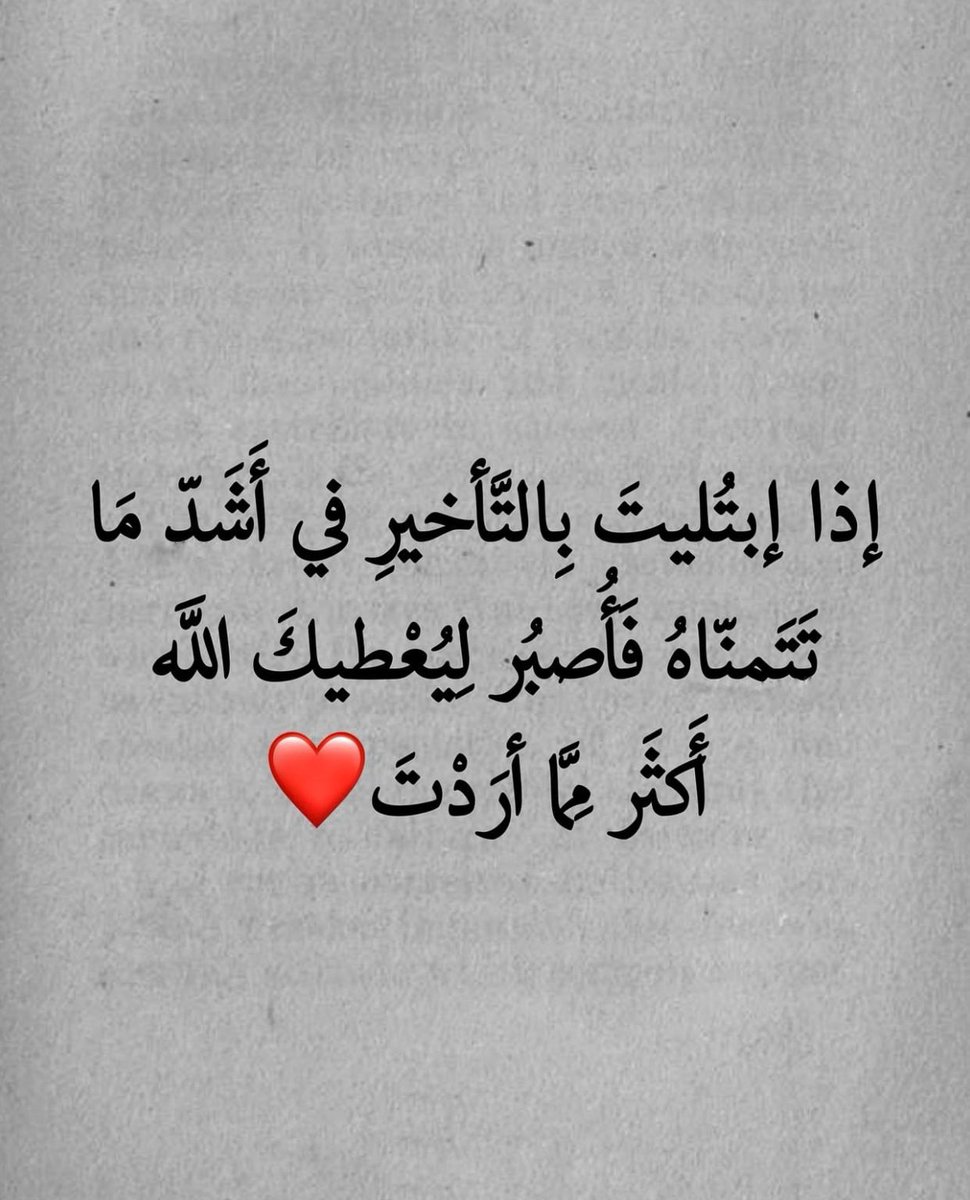 إذا إبتُليتَ بِالتَّأخيرِ في أَشَدّ مَا
تَتَمنّاهُ فَأُصبُر لِيُعْطيكَ اللَّه
أَكثَر مِمَّا أرَدْتَ❤️